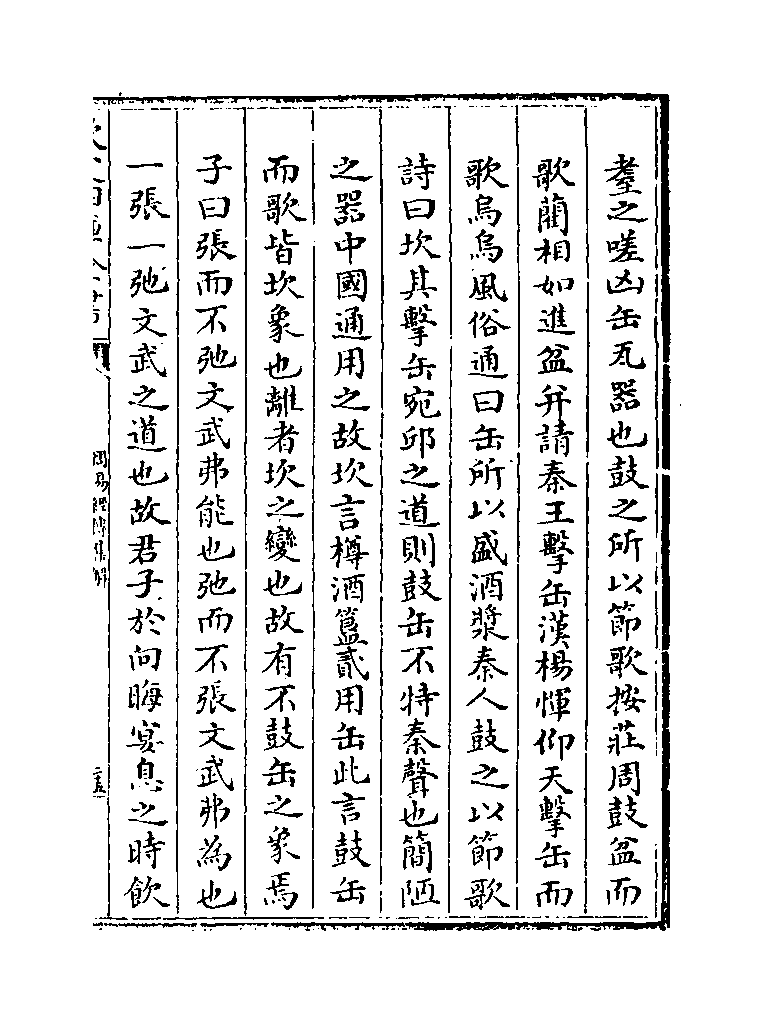 耋之嗟凶缶瓦器也鼓之所以節歌按莊周鼓盆而
歌藺相如進盆并請秦王擊缶漢楊惲仰天擊缶而
歌烏烏風俗通曰缶所以盛酒漿秦人鼓之以節歌
詩曰坎其擊缶宛邱之道則鼓缶不特秦聲也簡陋
之器中國通用之故坎言樽酒簋貳用缶此言鼓缶
而歌皆坎象也離者坎之變也故有不鼓缶之象焉
子曰張而不弛文武弗能也弛而不張文武弗為也
一張一弛文武之道也故君子於向晦宴息之時飲
周易經傳集解